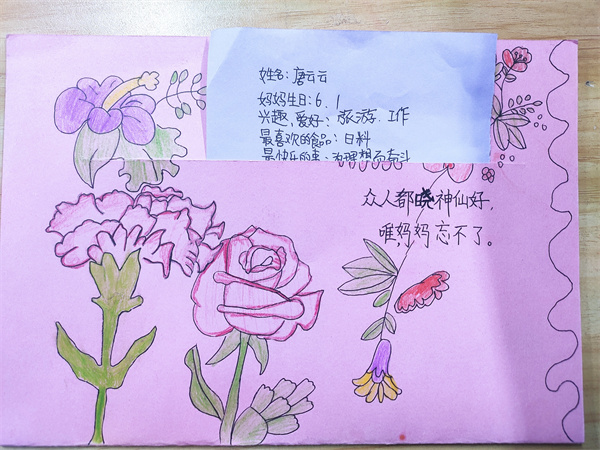 姓名:唐云云
妈妈生日:6.1
兴趣、爱好:旅游.工作
最喜欢的食品:日料
最快乐的事:为理想而奋斗
众人都晓神仙好,
唯,妈妈忘不了。